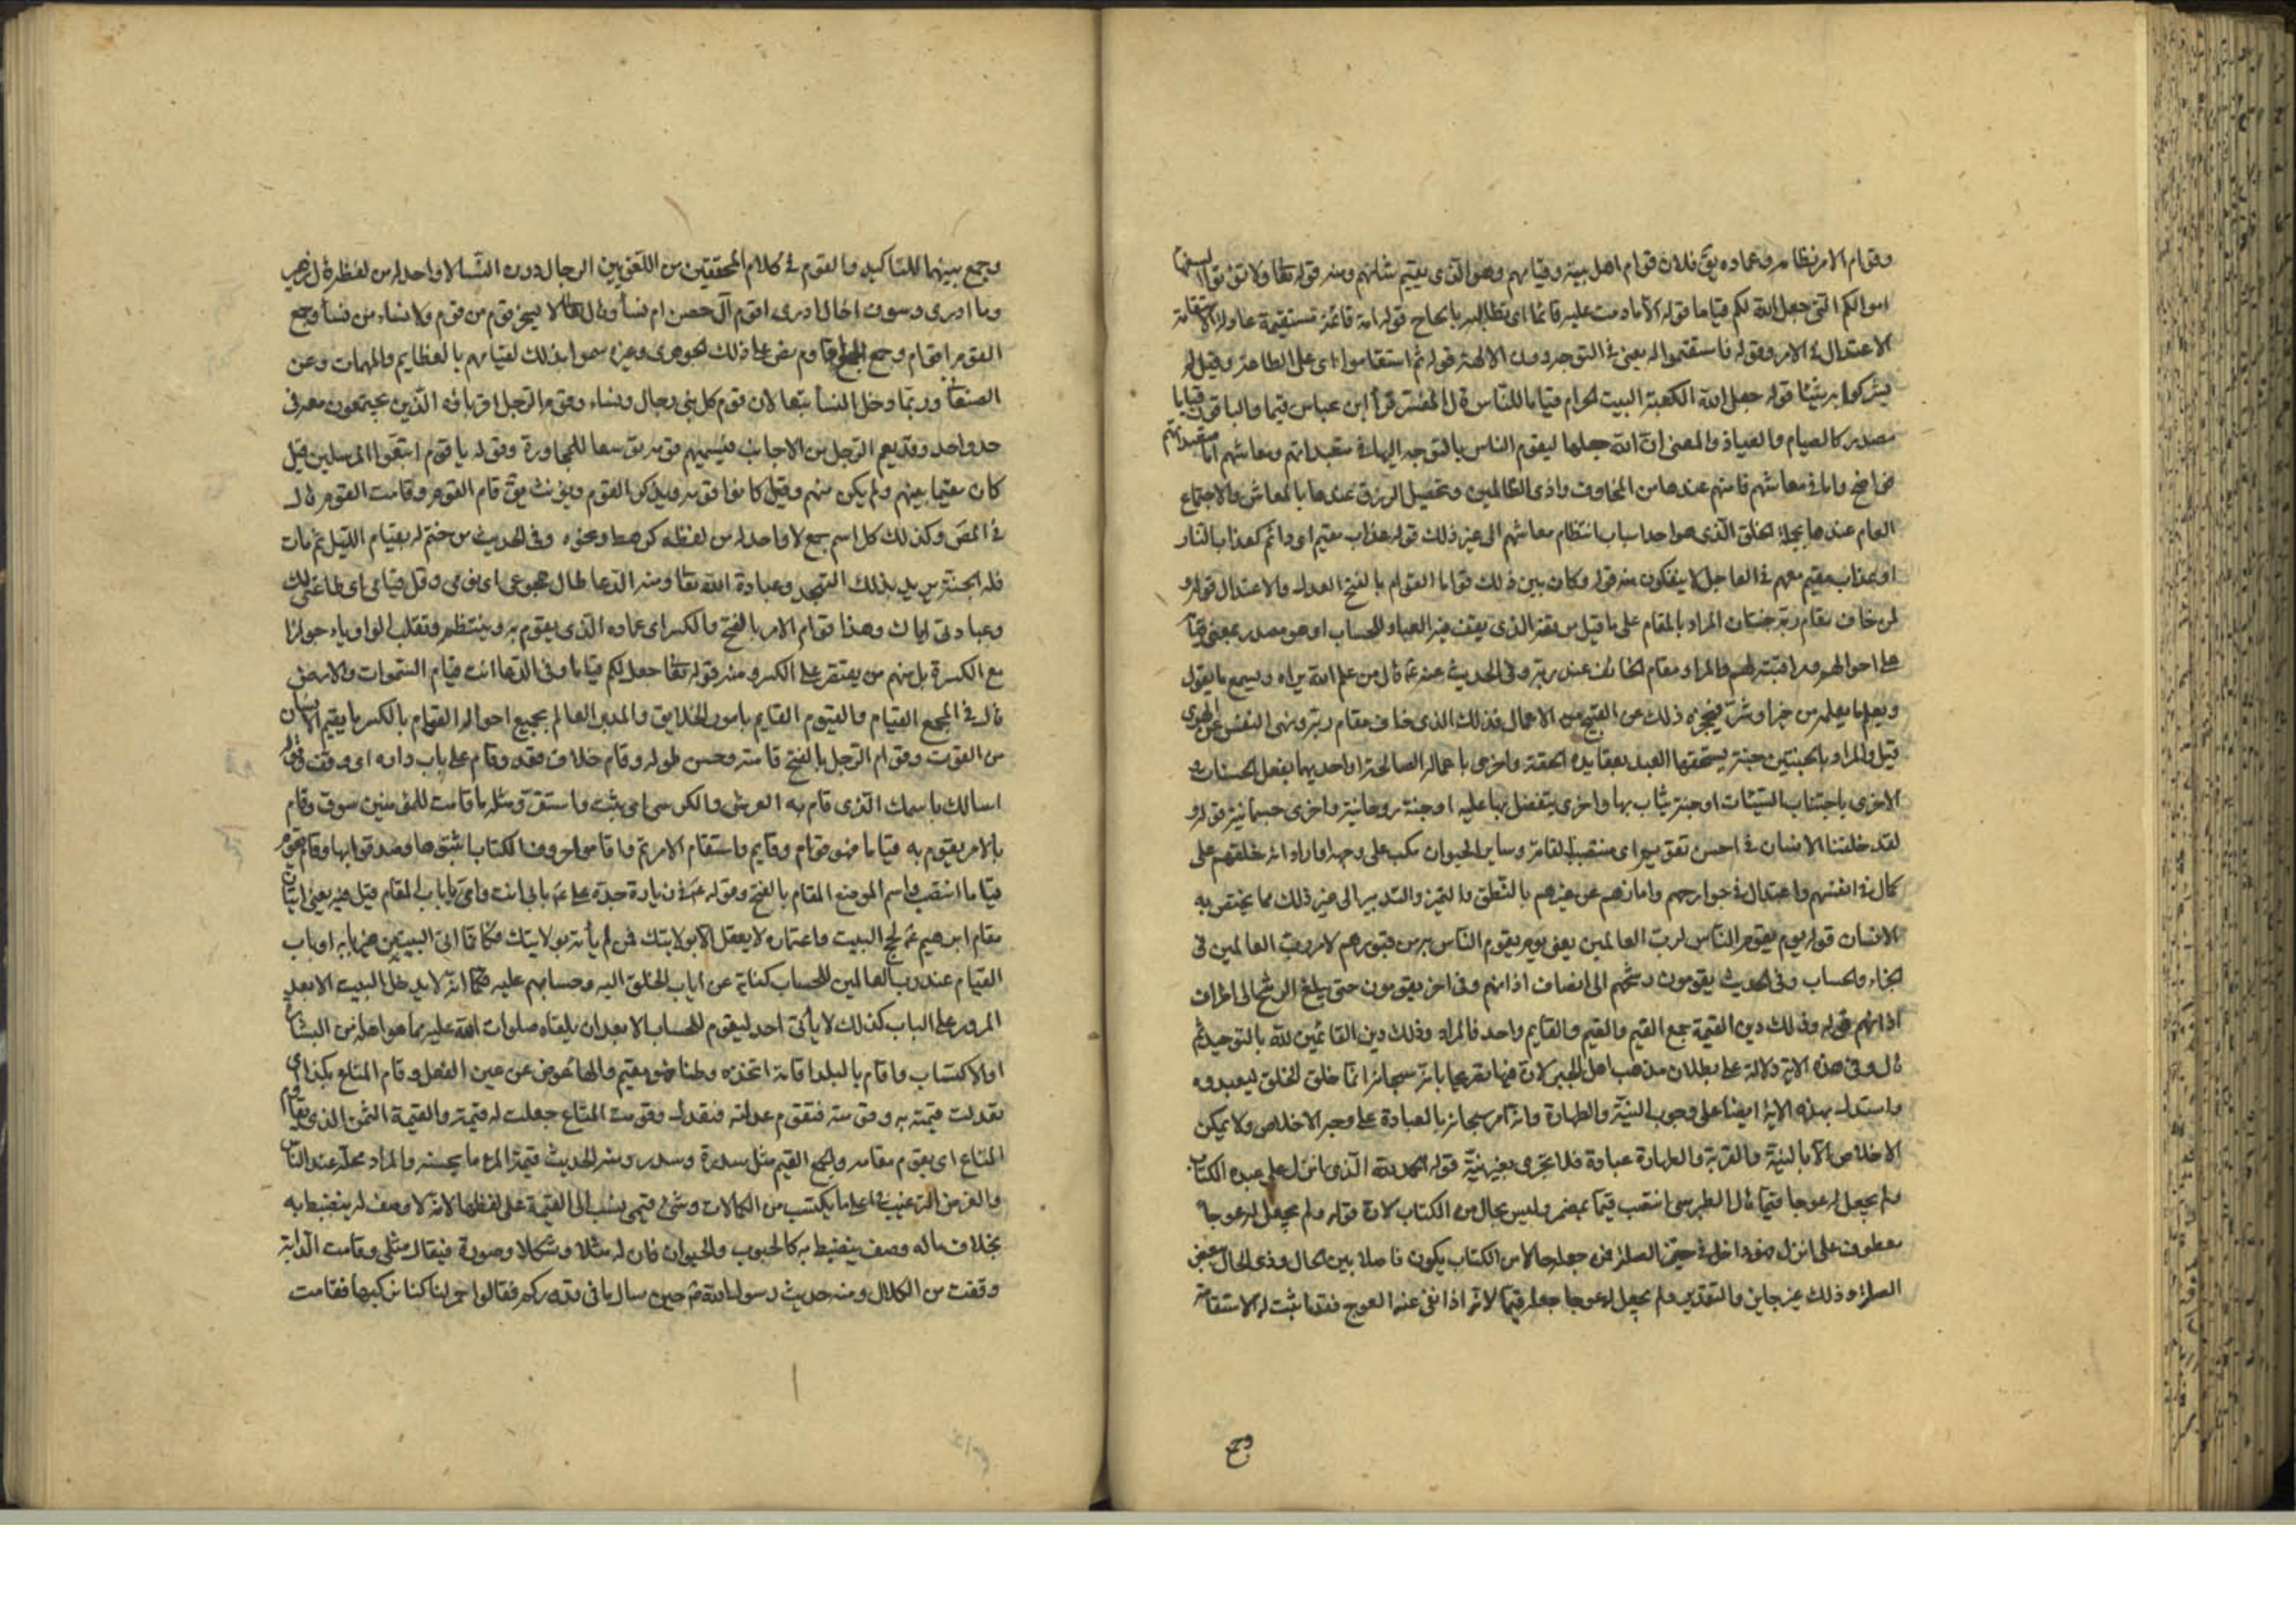 وقوام الامر نظامه وعماده يقّ فلان قوام اهل بيته وقيامهم وهو الذى يقيم شانهم ومنه قوله تعّا ولا تؤتوا السفهاء
اموالكم التى جعل الله لكم قياما قوله الا ما دمت عليه قائما اى تطالبه بالحاح قوله امة قائمة مستقيمة عادلة الاستقامة
الاعتدال فى الامر وقوله فاستقيموا اليه يعنى فى التوجه دون الالهة قوله ثم استقاموا اى على الطاعة وقيل لم
يشركوا به شيئا قوله جعل الله الكعبة البيت الحرام قياما للناس قال المفسر قرأ ابن عباس قيما والباقون قياما
مصدر كالصيام والعياذ والمعنى ان الله جعلها ليقوم الناس بالتوجه اليها فى متعبداتهم ومعاشهم اما متعبداتهم
فواضح واما فى معاشهم فامنهم عندها من المخاوف واذى الظالمين وتحصيل الرزق عندها بالمعاش والاجتماع
العام عندها بجملة الخلق الذى هو احد اسباب انتظام معاشهم الى غير ذلك قوله عذاب مقيم اى دائم كعذاب النار
او عذاب مقيم معهم فى العاجل لا ينفكون منه قوله وكان بين ذلك قواما القوام بالفتح العدل والاعتدال قوله و
لمن خاف مقام ربه جنتان المراد بالمقام على ما قيل موقفه الذى يقف فيه العباد للحساب او هو مصدر بمعنى قيامه
على احوالهم ومراقبته لهم والمراد مقام الخائف عند ربه وفى الحديث عنه عّ قال من علم الله يراه ويسمع ما يقول
ويعلم ما يعمله من خير او شر فيحجزه ذلك عن القبيح من الاعمال فذلك الذى خاف مقام ربه ونهى النفس عن الهوى
قيل والمراد بالجنتين جنة يستحقها العبد بعقايده الحقة واخرى باعماله الصالحة او احديهما بفعل الحسنات و
الاخرى باجتناب السيئات او جنة يثاب بها واخرى يتفضل بها عليه او جنة روحانية واخرى جسمانية قوله و
لقد خلقنا الانسان فى احسن تقويم اى منتصب القامة وساير الحيوان مكب على وجهه او اراد انه خلقهم على
كمال فى انفسهم واعتدال فى جوارحهم وامانهم عن غيرهم بالنطق والتميز والتدبير الى غير ذلك مما يختص به
الانسان قوله يوم يقوم الناس لرب العالمين يعنى يوم يقوم الناس من قبورهم لامر رب العالمين فى
الجزاء والحساب وفى الحديث يقومون رشحهم الى انصاف اذانهم وفى اخر يقومون حتى يبلغ الرشح الى اطراف
اذانهم قوله وذلك دين القيمة جمع القيم والقيم والقايم واحد فالمراد وذلك دين القائمين لله بالتوحيد ثم
قال وفى هذه الاية دلالة على بطلان مذهب اهل الجبر لان فيها تصريحا بانه سبحانه انما خلق الخلق ليعبدوه
واستدل بهذه الاية ايضا على وجوب النية والطهارة وانه امر سبحانه بالعبادة على وجه الاخلاص ولا يمكن
الاخلاص الا بالنية والقربة والطهارة عبادة فلا تجزى بغير نية قوله الحمد لله الذى انزل على عبده الكتاب
ولم يجعل له عوجا قيما قال الطبرسى انتصب قيما بمضمر وليس بحال من الكتاب لان قوله ولم يجعل له عوجا
معطوف على انزل فهو داخل فى حيز الصلة فمن جعله حالا من الكتاب يكون فاصلا بين الحال وذى الحال ببعض
الصلة وذلك غير جايز والتقدير ولم يجعل له عوجا جعله قيما لانه اذا نفى عنه العوج فقد اثبت له الاستقامة
وج
وجمع بينهما للتاكيد والقوم فى كلام المحققين من اللغويين الرجال دون النسا لا واحد له من لفظه قال زهير
وما ادرى وسوف اخال ادرى اقوم آل حصن ام نسأ وقال تعّا لا يسخر قوم من قوم ولا نساء من نسأ وجمع
القوم اقوام وجمع الجمع اقاوم نص على ذلك الجوهرى وغيره سموا بذلك لقيامهم بالعظايم والمهمات وعن
الصنعا وربما دخل النسأ تبعا لان قوم كل نبى رجال ونساء وقوم الرجل اقرباؤه الذين يجتمعون معه فى
جد واحد وقد يقيم الرجل بين الاجانب فيسميهم قومه توسعا للمجاورة وقوله يا قوم اتبعوا المرسلين قيل
كان مقيما بينهم ولم يكن منهم وقيل كانوا قومه ويذكر القوم ويؤنث يقّ قام القوم وقامت القوم قال
فى المصّ وكذلك كل اسم جمع لا واحد له من لفظه كرهط ونحوه وفى الحديث من ختم له بقيام الليل ثم مات
فله الجنة يريد بذلك التهجد وعبادة الله تعّا ومنه الدعا طال هجوعى اى نومى وقل قيامى اى طاعتى لك
وعبادتى اياك وهذا قوام الامر بالفتح والكسر اى عماده الذى يقوم به وينتظم وتقلب الواو ياء جوازا
مع الكسرة بل منهم من يقتصر على الكسر ومنه قوله تعّا جعل لكم قياما وفى الدعا انت قيام السموات والارض
قال فى المجمع القيام والقيوم القايم بامور الخلايق والمدبر العالم بجميع احواله القوام بالكسر ما يقيم الانسان
من القوت وقوام الرجل بالفتح قامته وحسن طوله وقام خلاف قعد وقام على باب داره اى وقف وقوله
اسالك باسمك الذى قام به العرش والكرسى اى يثبت واستقر ومثله ما قامت للمؤمنين سوق وقام
بالامر يقوم به قياما فهو قوام وقايم واستقام الامر تم واقاموا حروف الكتاب اثبتوها وصدقوا بها وقام يقوم
قياما انتصب واسم الموضع المقام بالفتح وقوله عّ فى زيارة جده على عّ بابى انت وامى يا باب المقام قيل فيه يعنى اتيان
مقام ابرهيم عّ لحج البيت واعتماره لا يقبل الا بولايتك فمن لم يأته بولايتك فكانما اتى البيت من غير بابه او باب
القيام عند رب العالمين للحساب كناية عن اياب الخلق اليه وحسابهم عليه فكما انه لا يدخل البيت الا بعد
المرور على الباب كذلك لا يأتى احد ليقوم للحساب الا بعد ان يلقاه صلوات الله عليه بما هو اهله من البشارة
او الاكتساب واقام بالبلد اقامة اتخذه وطنا فهو مقيم والهأ عوض عن عين الفعل وقام المتاع بكذا اى
تعدلت قيمته به وقومته فتقوم عدلته فتعدل وقومت المتاع جعلت له قيمة والقيمة الثمن الذى يقاوم
المتاع اى يقوم مقامه والجمع القيم مثل سدرة وسدر ومنه الحديث قيمة المرء ما يحسنه والمراد محله عند الناس
والغرض الترغيب فى اعلى ما يكتسب من الكمالات وشئ قيمى نسب الى القيمة على لفظها لانه لا وصف له ينضبط به
بخلاف ما له وصف ينضبط به كالحبوب والحيوان فان له مثلا وشكلا وصورة فيقال مثلى وقامت الدابة
وقفت من الكلال ومنه حديث رسول الله صّ حين سال ما فى قدوركم فقالوا حمر لنا كنا نركبها فقامت